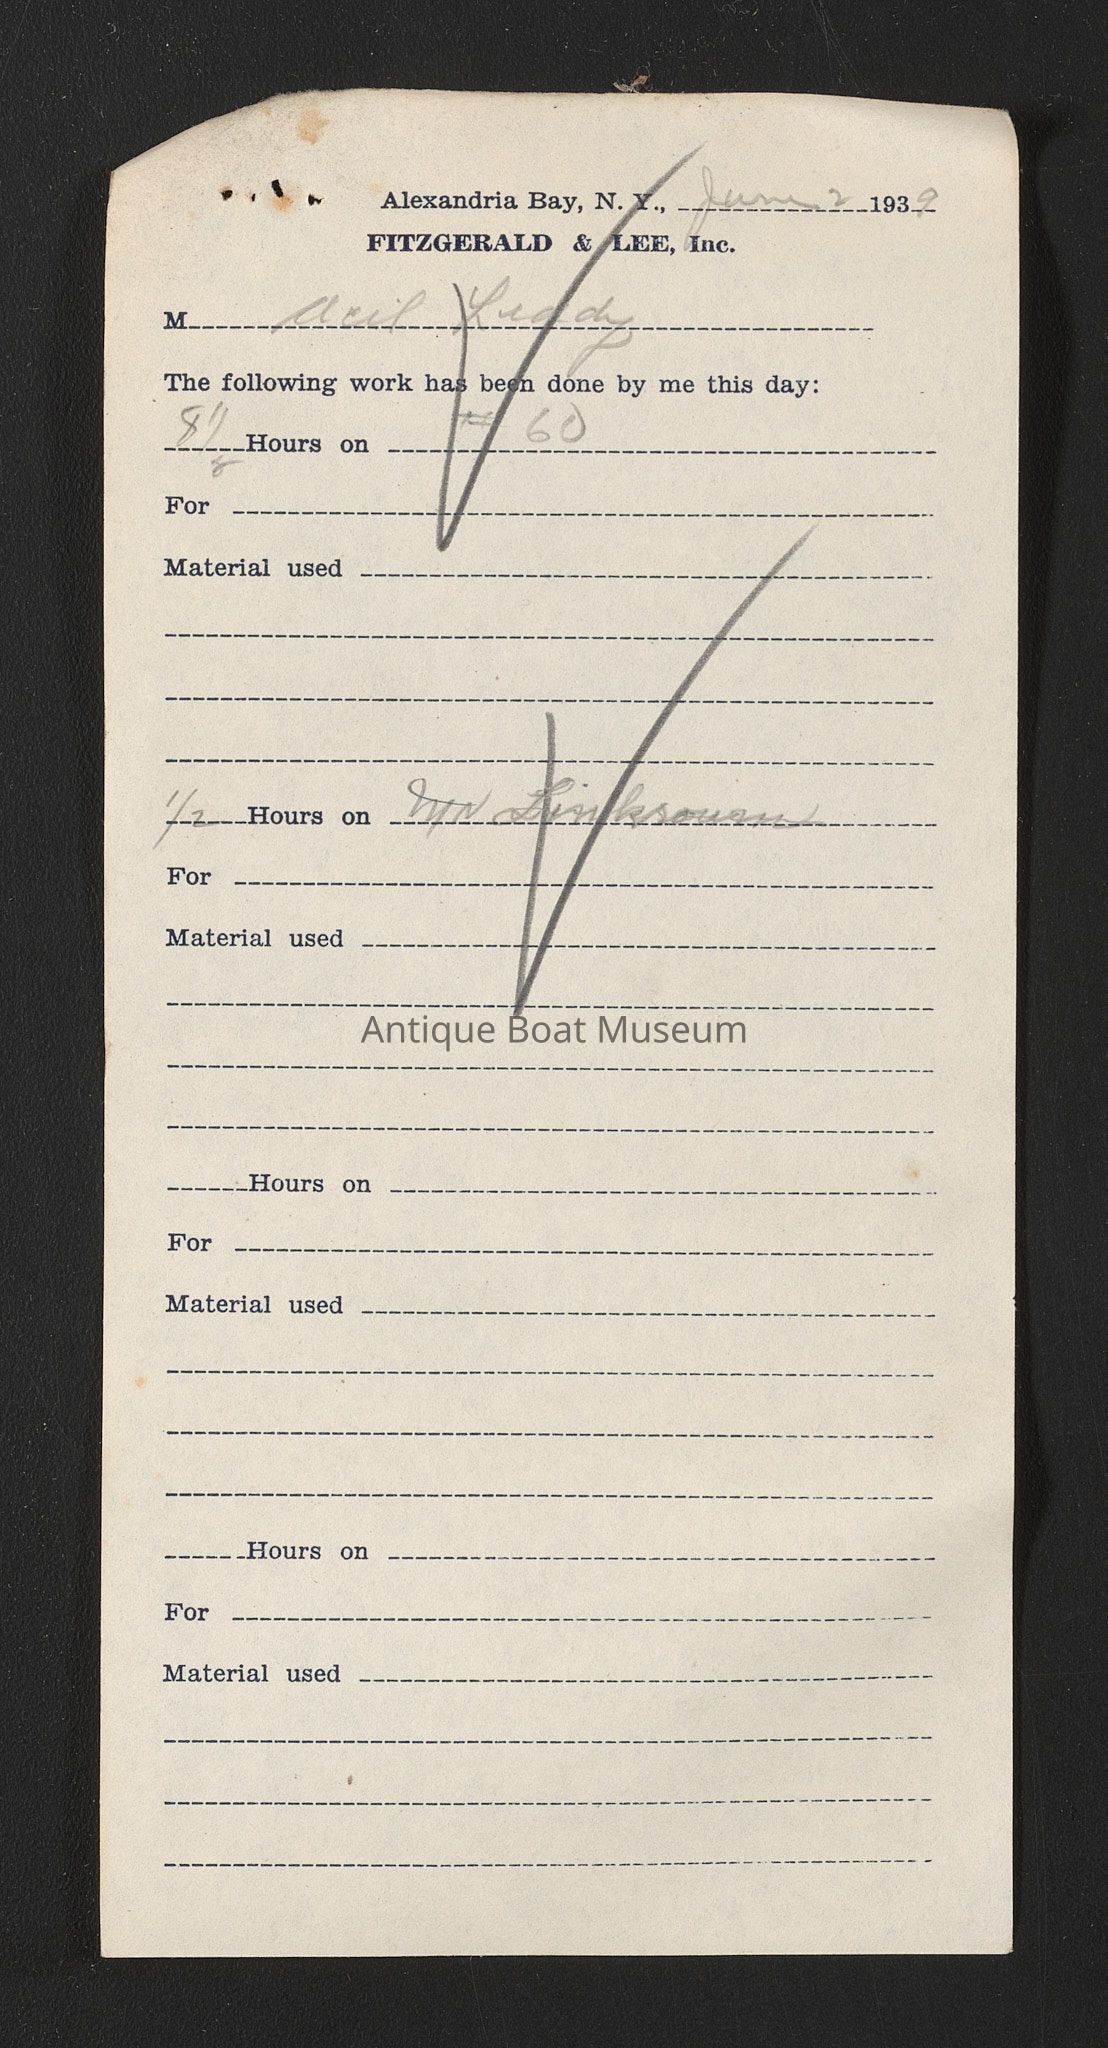 Alexandria Bay, N. Y., June 2 1939
FITZGERALD & LEE, Inc.
M Leddy
The following work has been done by me this day:
8 1/2 Hours on # 60
For
Material used
1/2 Hours on Mr
For
Material used
Antique Boat Museum
Hours on
For
Material used
Hours on
For
Material used